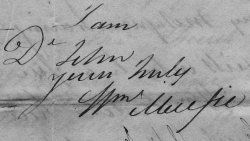 I am
Dr John
yours truly
Wm